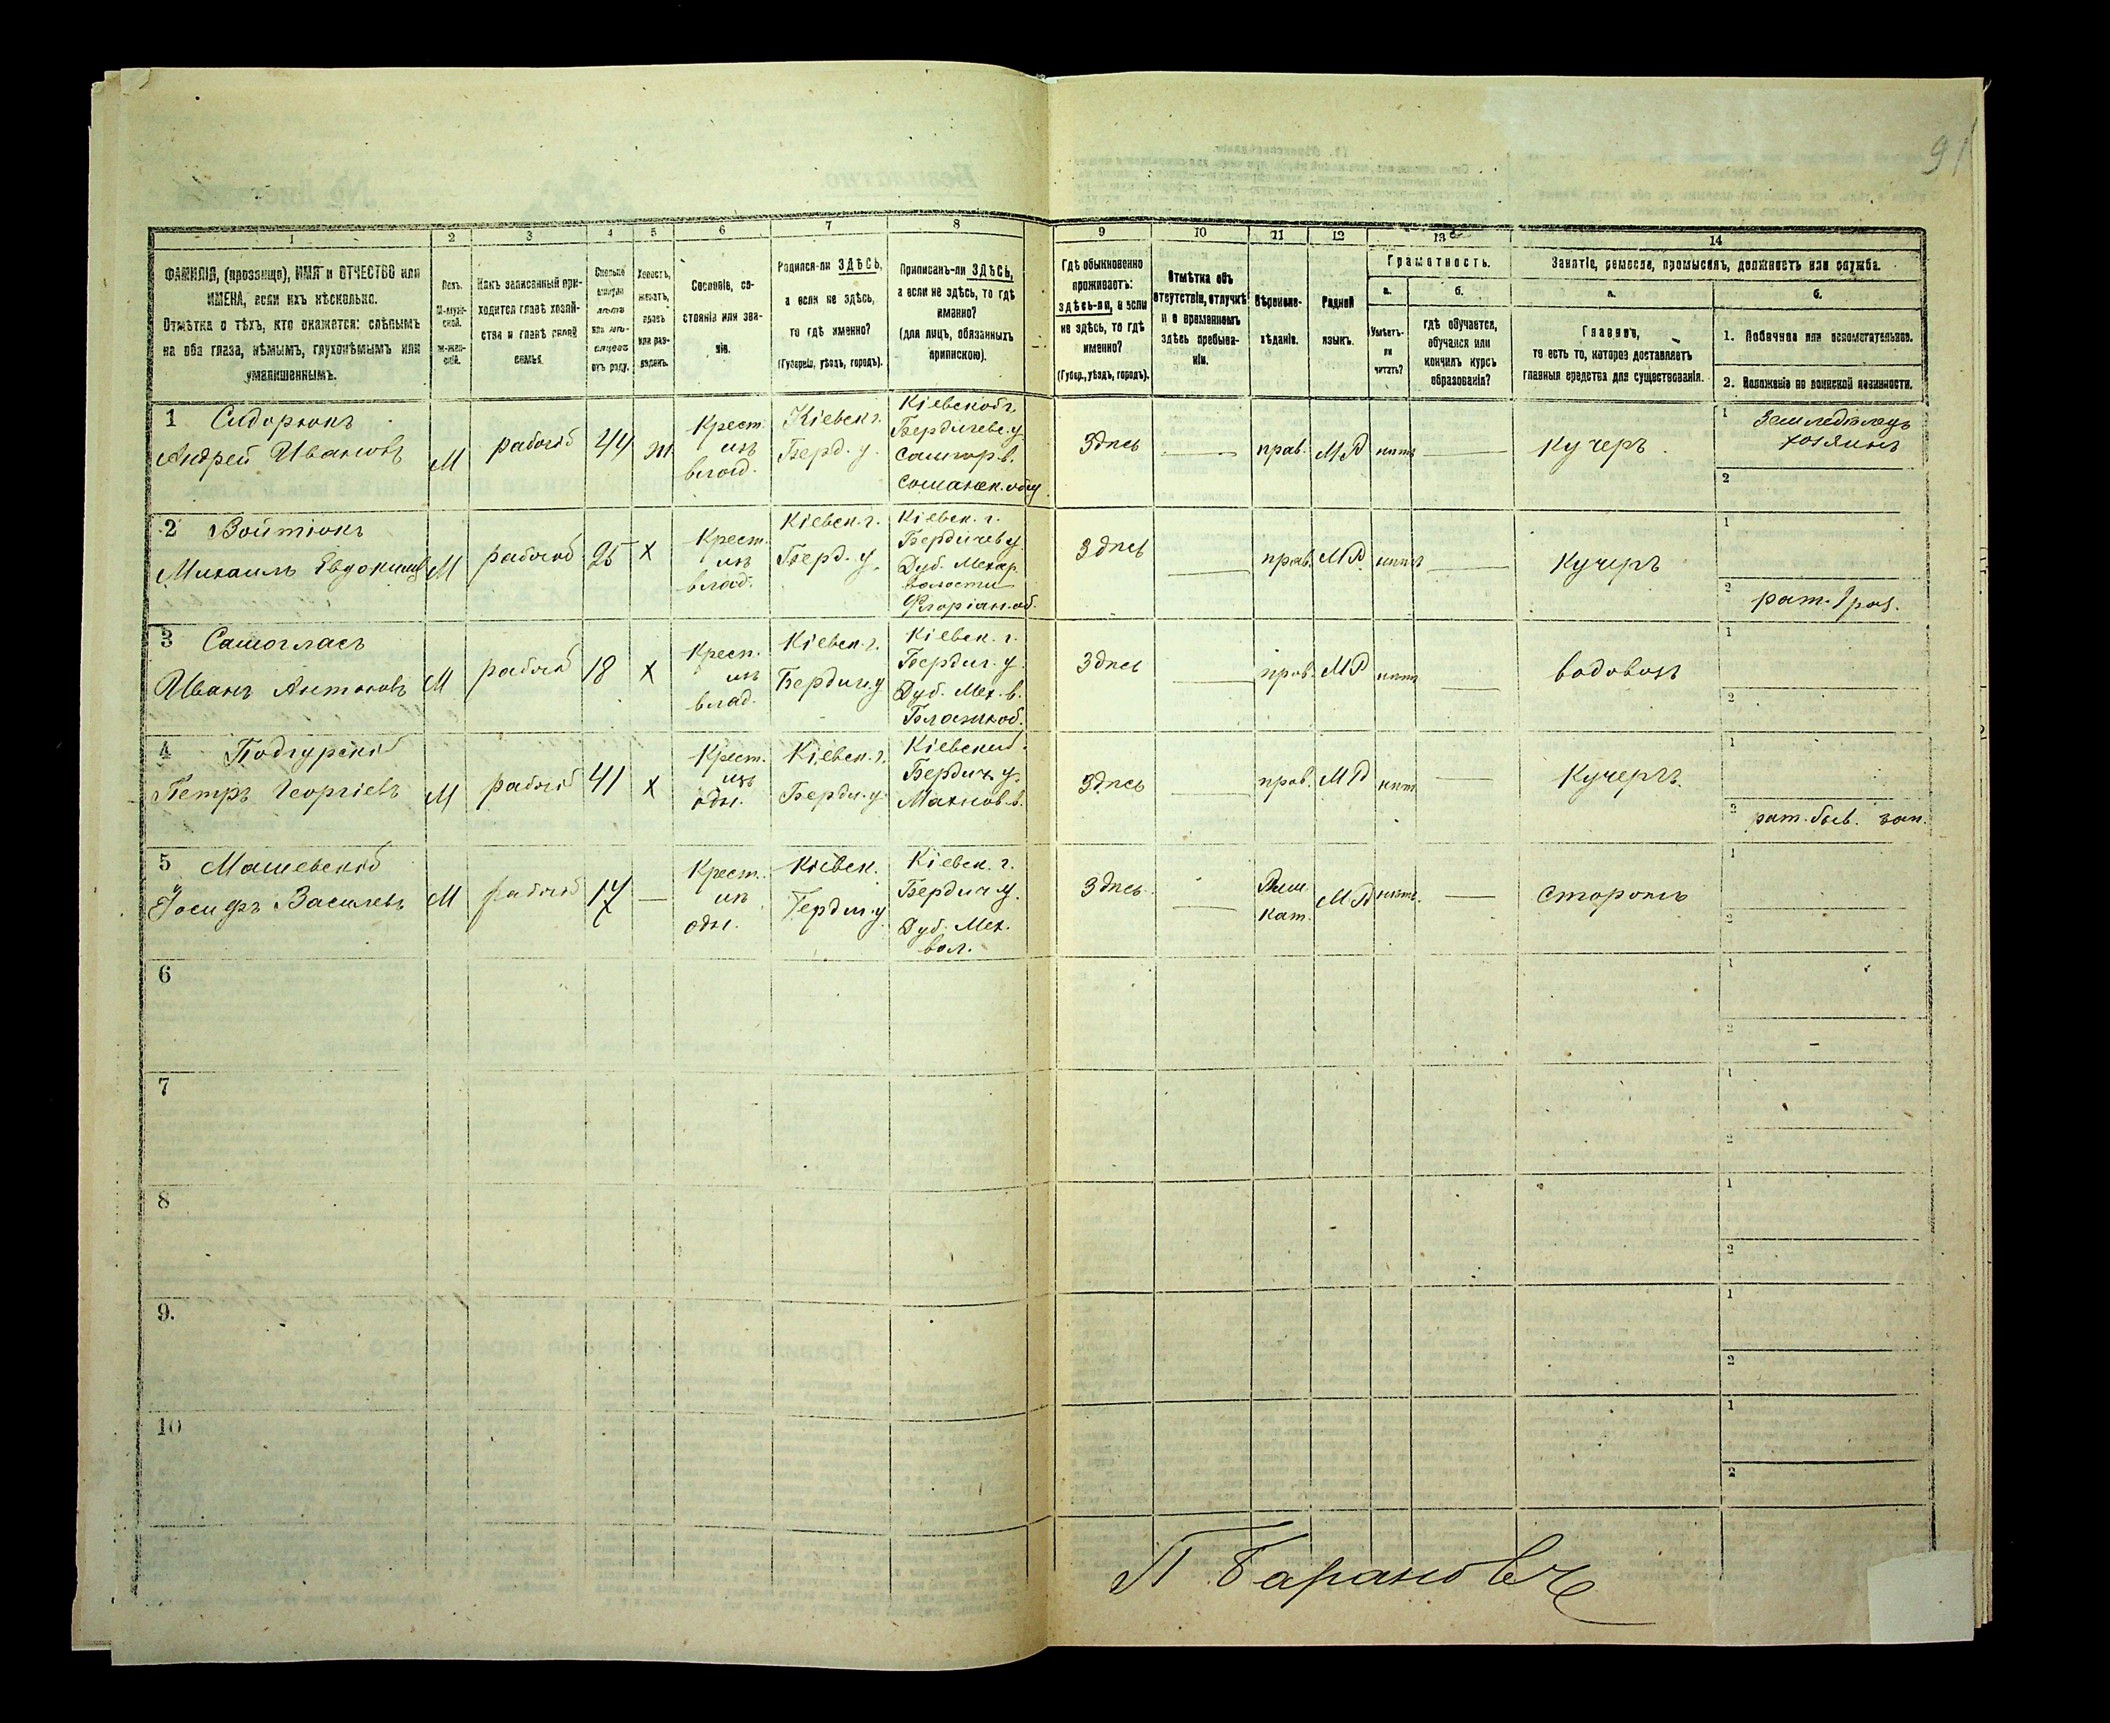 91
1 2 3 4 5 6 7 8 9 10 11 12 13 14
ФАМИЛІЯ, (прозвище), ИМЯ и ОТЧЕСТВО или
ИМЕНА, если ихъ нѣсколько.
Отмѣтка о тѣхъ, кто окажется: слѣпымъ
на оба глаза, нѣмымъ, глухонѣмымъ или
умалишеннымъ.
Полъ.
М-муж-
ской.
Ж-жен-
скій.
Какъ записанный при-
ходится главѣ хозяй-
ства и главѣ своей
семьи.
Сколько
минуло
лѣтъ
или мѣ-
сяцевъ
отъ роду.
Холостъ,
женатъ,
вдовъ
или раз-
веденъ.
Сословіе, со-
стояніе или зва-
ніе.
Родился-ли ЗДѢСЬ,
а если не здѣсь,
то гдѣ именно?
(Губернія, уѣздъ, городъ).
Приписанъ-ли ЗДѢСЬ,
а если не здѣсь, то гдѣ
именно?
(для лицъ, обязанныхъ
припискою).
Гдѣ обыкновенно
проживаетъ:
здѣсь-ли, а если
не здѣсь, то гдѣ
именно?
(Губер., уѣздъ, городъ).
Отмѣтка объ
отсутствіи, отлучкѣ
и о временномъ
здѣсь пребыва-
ніи.
Вѣроиспо-
вѣданіе.
Родной
языкъ.
Грамотность.
а.
Умѣетъ-
ли
читать?
б.
гдѣ обучается,
обучался или
кончилъ курсъ
образованія?
Занятіе, ремесло, промыселъ, должность или служба.
а.
Главное,
то есть то, которое доставляетъ
главныя средства для существованія.
б.
1. Побочное или вспомогательное.
2. Положеніе по воинской повинности.
1 Сидорюкъ
Андрей Ивановъ М рабочій 44 ж
Крест.
изъ
влад.
Кіевск. г.
Берд. у.
Кіевской г.
Бердичевс. у.
Здѣсь — прав. МР нѣтъ — кучеръ
1 Земледѣлецъ
хозяинъ
2
2 Войтюкъ
Михаилъ Евдокимовъ М рабочій 25 х
Крест.
изъ
влад.
Кіевск. г.
Берд. у.
Кіевск. г.
Бердичев у.
Дуб. Мехер.
волости
Флоріан. об.
Здѣсь — прав. МР нѣтъ — Кучеръ
1
2 рат. 1 раз.
3 Самогласъ
Иванъ Антоновъ М рабочій 18 х
Крест.
изъ
влад.
Кіевск. г.
Бердич. у
Кіевск. г.
Бердич. у.
Дуб. Мех. в.
Здѣсь — прав. МР нѣтъ — водовозъ
1
2
4 Подгурскій
Петръ Георгіевъ М рабочій 41 х
Крест.
изъ
одн.
Кіевск. г.
Бердич. у.
Кіевской
Бердич. у.
Махнов. в.
Здѣсь — прав. МР нѣтъ — Кучеръ.
1
2 рат. быв. зап.
5 Машевскій
Іосифъ Васильевъ М рабочій 17 —
Крест.
изъ
одн.
Кіевск.
Бердич. у
Кіевск. г.
Бердич у.
Дуб. Мех.
вол.
Здѣсь. — Рим.
кат. МР нѣтъ. — сторожъ
1
2
6 1
2
7 1
2
8 1
2
9. 1
2
10 1
2
П Барановъ